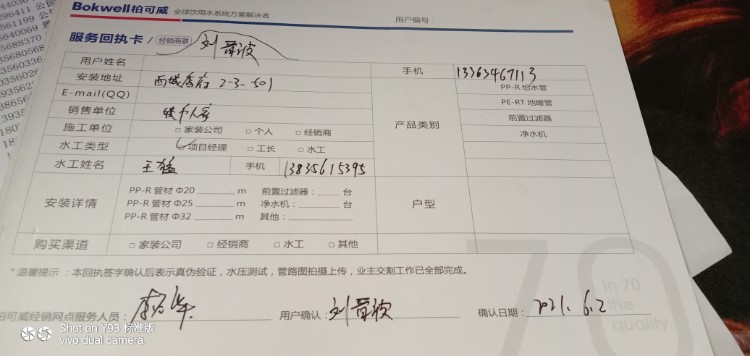 Bokwell柏可威 全球饮用水系统方案解决者
用户编号：
服务回执卡 / 经销商联
用户姓名 手机 13363467113
安装地址 西城居府 2-3-501 PP-R 给水管
E-mail(QQ) PE-RT 地暖管
销售单位 产品类别 前置过滤器
施工单位 □ 家装公司 □ 个人 □ 经销商 净水机
水工类型 □ 项目经理 □ 工长 □ 水工
水工姓名 王猛 手机 13835615395
安装详情 PP-R 管材 Φ20 m 前置过滤器： 台 户型
PP-R 管材 Φ25 m 净水机： 台
PP-R 管材 Φ32 m 其他：
购买渠道 □ 家装公司 □ 经销商 □ 水工 □ 其他
*温馨提示：本回执签字确认后表示真伪验证，水压测试，管路图拍摄上传，业主交割工作已全部完成。
70
In 70
the
quality
柏可威经销网点服务人员： 用户确认： 确认日期：2021.6.2
Shot on Y93 标准版
vivo dual camera